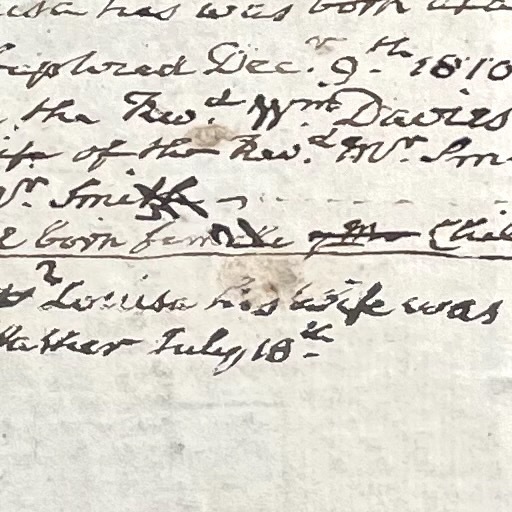 was born
Baptized Decr. 9th 1810
the Revd. Wm. Davies
of the Revd. Mr. Sm
Mr. Smith
born female Chil
& Louisa his wife was
July 18th